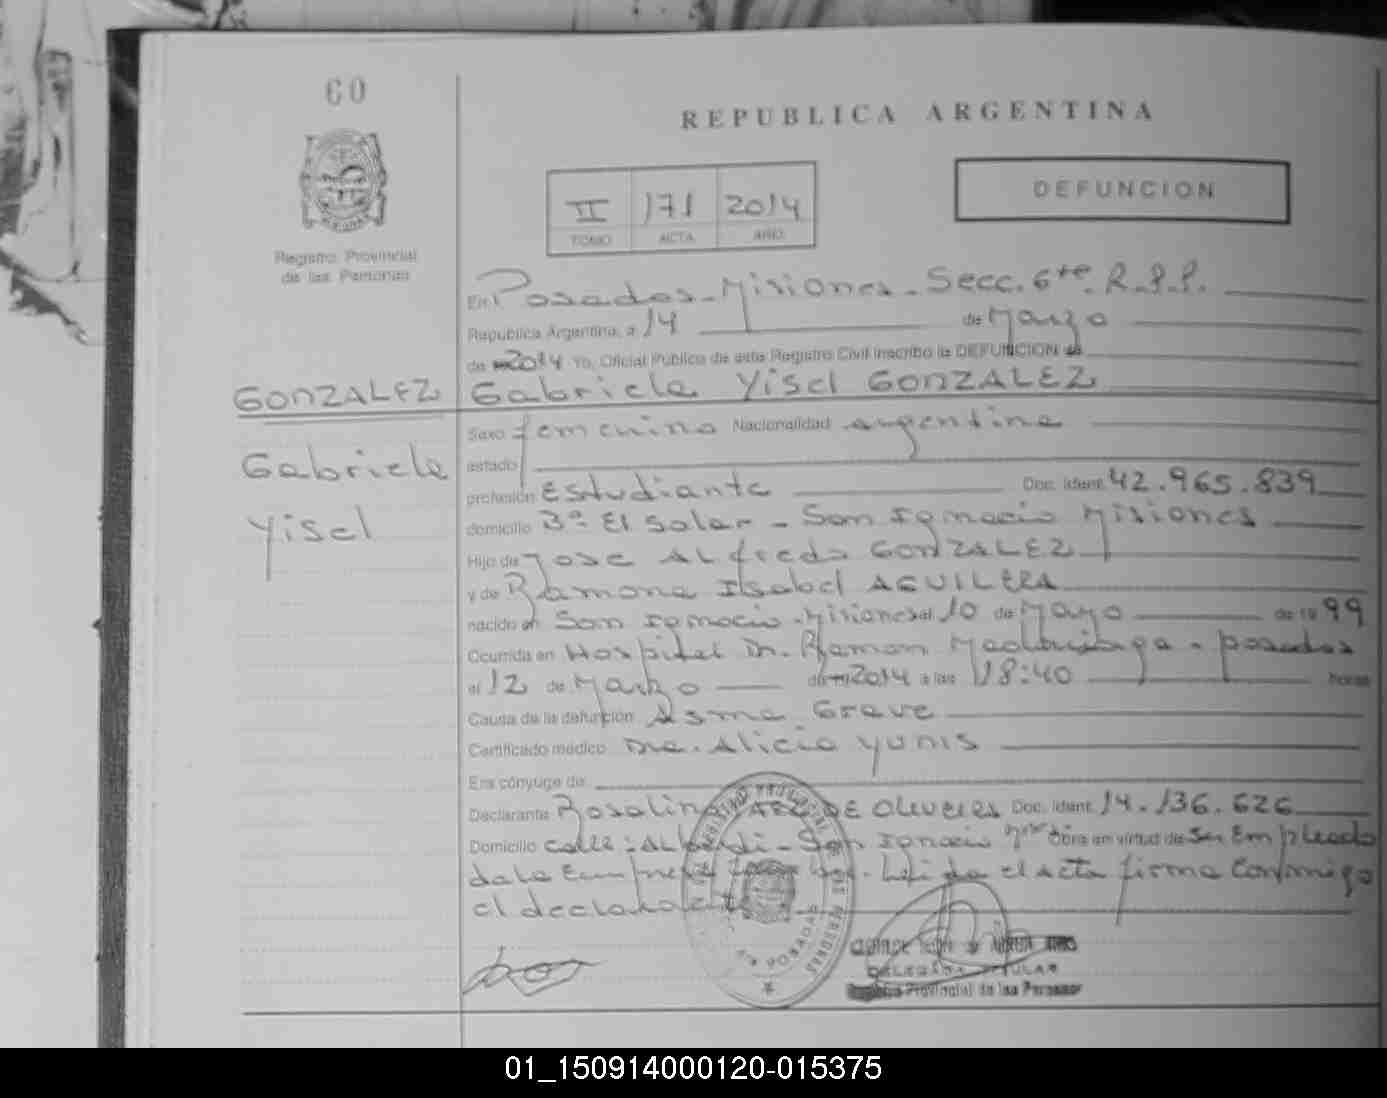 60
REPUBLICA ARGENTINA
II 171 2014
TOMO ACTA AÑO
DEFUNCION
Registro Provincial
de las Personas
En Posadas - Misiones - Secc. 6ta. R.P.P.
Republica Argentina, a 14 de Marzo
de 2014 Yo, Oficial Público de este Registro Civil inscribo la DEFUNCION de
GONZALEZ Gabriela Yisel GONZALEZ
Sexo femenino Nacionalidad argentina
Gabriela
estado
profesión Estudiante Doc. Ident. 42.965.839
Yisel
domicilio Bº El Solar - San Ignacio Misiones
Hijo de Jose ALfredo GONZALEZ
y de Ramona Isabel AGUILERA
nacido en San Ignacio - Misiones el 10 de Mayo de 19 99
Ocurrida en Hospital Dr. Ramon Madariaga - Posadas
el 12 de Marzo de 2014 a las 18:40 horas
Causa de la defunción Asma Grave
Certificado médico Dra. Alicia Yunis
Era cónyuge de
Declarante Rosalino DE Oliveira Doc. Ident. 14.136.626
Domicilio Calle: ALberdi - San Ignacio Obra en virtud de Ser Empleado
de la Empresa Leida el acta firma Conmigo
el declarante
DELEGADA TITULAR
Registro Provincial de las Personas
01_150914000120-015375